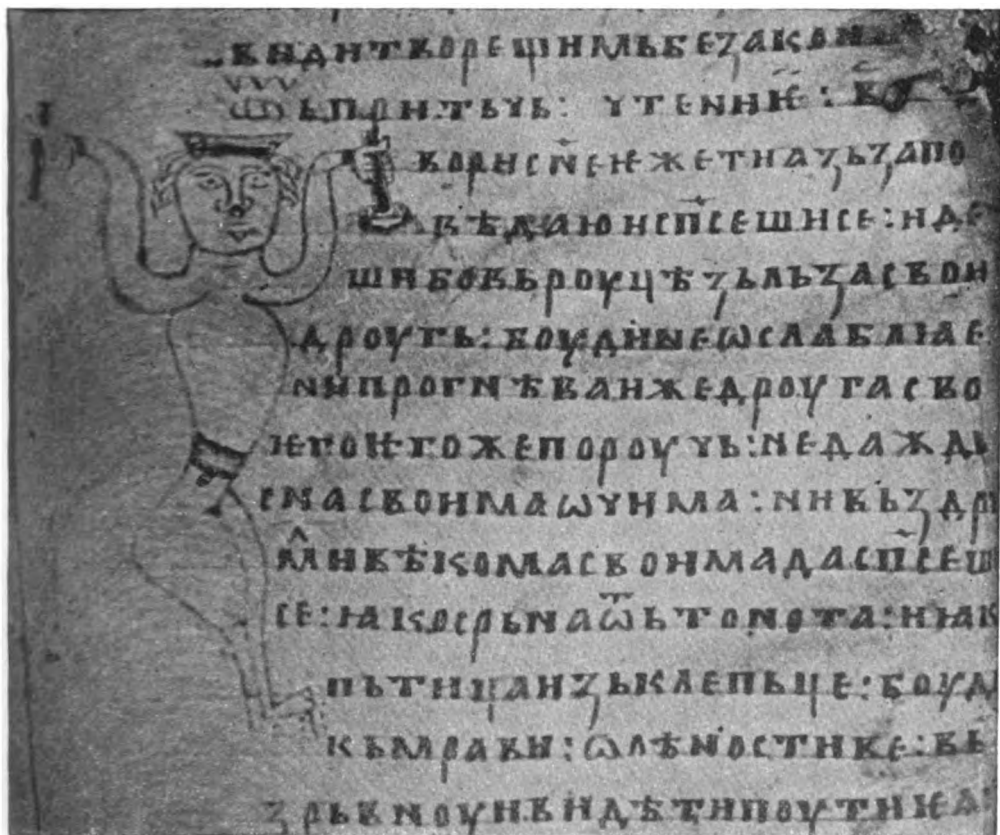 видитворещимьбезакон
ѿпритьчь: чтениѥ:
творисн҃еꙗжетиазьзапо
вѣдаюисп҃сешисе:иде
шибовьроуцѣзьльзасвои
дроугь:боудинеѡслаблꙗе
нипрогнѣваижедроугасво
ѥгоѥгожепороучь:недаждь
снасвоимаѡчима:нивьздрѣ
мл҃ивѣкомасвоимадасп҃сеш
се:ꙗкосрьнаѿьтонота:иꙗк
пьтицаизьклепьце:боуд
кьмрави:ѡлѣностике:ви
зрьвноуивидѣтипоутиѥꙗ